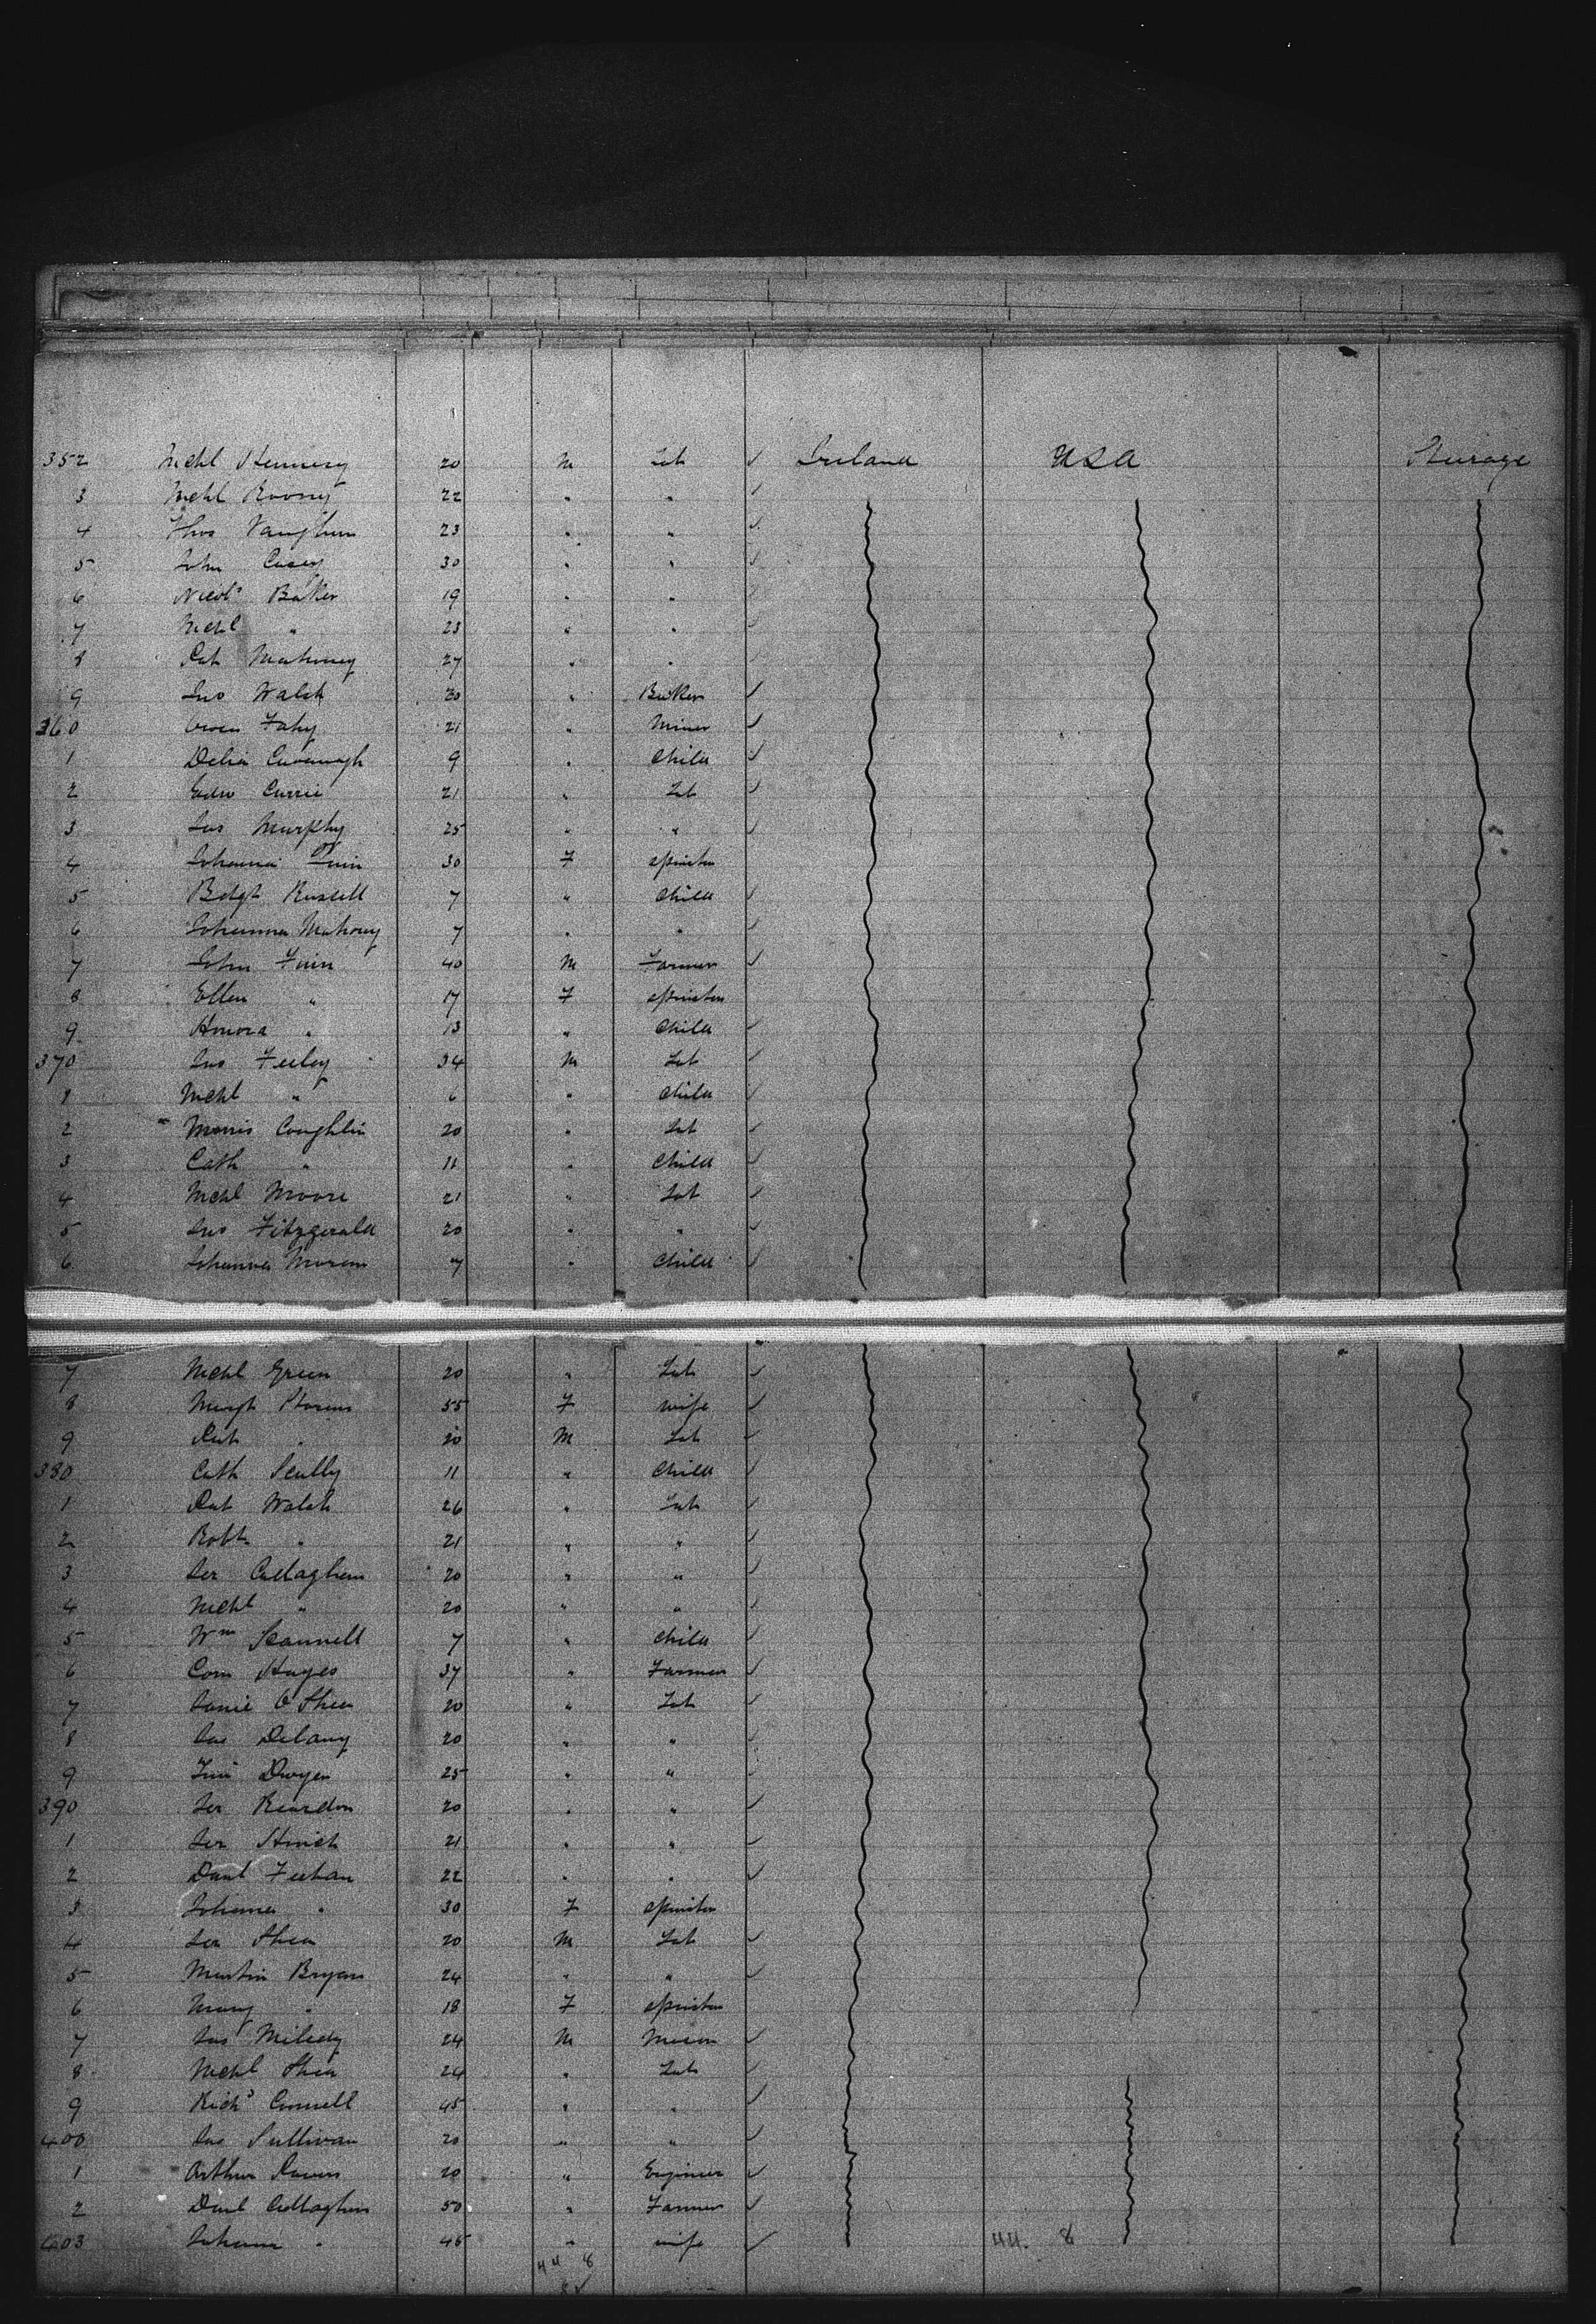 352 Michl Hennesy 20 M Lab ✓ Ireland USA Steerage
3 Michl Roony 22 " " ✓
4 Thos Vaughan 23 " " ✓
5 John Casey 30 " " ✓
6 Nichs Baker 19 " "
7 Michl " 23 " "
8 Pat Mahoney 27 " "
9 Jno Walsh 20 " Baker ✓
360 Owen Fahy 21 " Miner ✓
1 Delia Cavanagh 9 " Child ✓
2 Edw Currie 21 " Lab ✓
3 Jas Murphy 25 " " ✓
4 Johanna 30 F Spinster
5 Bdgt Russell 7 " Child ✓
6 Johanna Mahony 7 " " ✓
7 John Finn 40 M Farmer ✓
8 Ellen " 17 F Spinster
9 Honora " 13 " Child ✓
370 Jno Feeley 34 M Lab ✓
1 Michl " 6 " Child ✓
2 " Morris Coughlin 20 " Lab ✓
3 Cath " 11 " Child ✓
4 Michl Moore 21 " Lab ✓
5 Jno Fitzgerald 20 " " ✓
6 Johanna Moran 7 " Child ✓
7 Michl Green 20 " Lab ✓
8 Margt 55 F Wife ✓
9 Pat " 20 M Lab ✓
380 Cath Scully 11 " Child ✓
1 Pat Walsh 26 " Lab ✓
2 Robt " 21 " " ✓
3 Jer Callaghan 20 " " ✓
4 Michl " 20 " " ✓
5 Wm Scannell 7 " Child ✓
6 Corn Hayes 37 " Farmer ✓
7 O Shea 20 " Lab ✓
8 Jas Delany 20 " " ✓
9 Tim Dwyer 25 " " ✓
390 Jer Reardon 20 " " ✓
1 Jer 21 " " ✓
2 Danl Feehan 22 " " ✓
3 Johanna " 30 F Spinster
4 Jer Shea 20 M Lab ✓
5 Martin Bryan 24 " " ✓
6 Mary " 18 F Spinster
7 Jas 24 M Mason ✓
8 Michl Shea 24 " Lab ✓
9 Richd Connell 45 " " ✓
400 Jas Sullivan 20 " " ✓
1 Arthur Powers 20 " Engineer ✓
2 Danl Callaghan 50 " Farmer ✓
403 Johanna " 45 " Wife ✓ 44. 8
44 8